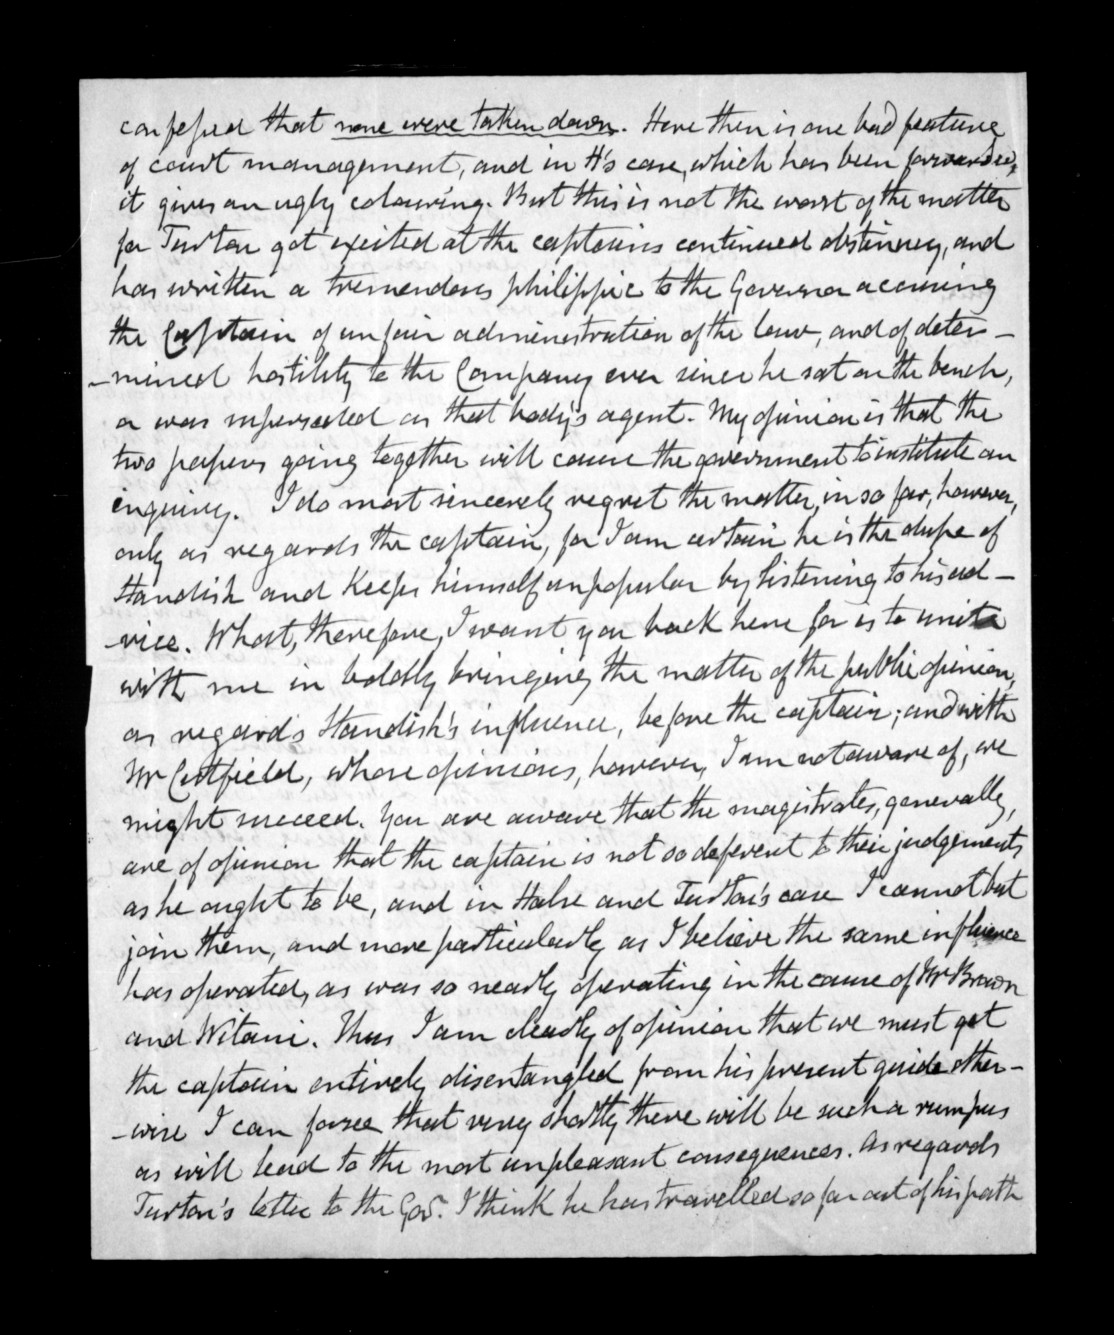 confessed that none were taken down. Here then is one bad feature
of court management, and in H's case, which has been forwarded,
it gives an ugly colouring. But this is not the worst of the matter
for Turton got excited at the captains continued obstinacy, and
has written a tremendous philippic to the Governor accusing
the Captain of unfair administration of the law, and of deter-
-mined hostility to the Company ever since he sat on the bench,
or was superseded as that body's agent. My opinion is that the
two papers going together will cause the government to institute an
enquiry. I do most sincerely regret the matter, in so far, however,
only as regards the captain, for I am certain he is the dupe of
Standish and keeps himself unpopular by listening to his ad-
-vice. What, therefore, I want you back here for is to unite
with me in boldly bringing the matter of the public opinion,
as regards Standish's influence, before the captain; and with
Mr Cutfield, whose opinions, however, I am not aware of, we
might succeed. You are aware that the magistrates, generally,
are of opinion that the captain is not so deferent to their judgements
as he ought to be, and in Halse and Turton's case I cannot but
join them, and more particularly as I believe the same influence
has operated, as was so nearly operating in the cause of Mr Brown
and Witani. Thus I am clearly of opinion that we must get
the captain entirely disentangled from his present guide other-
-wise I can forsee that very shortly there will be such a rumpus
as will lead to the most unpleasant consequences. As regards
Turton's letter to the Gov.r I think he has travelled so far out of his path